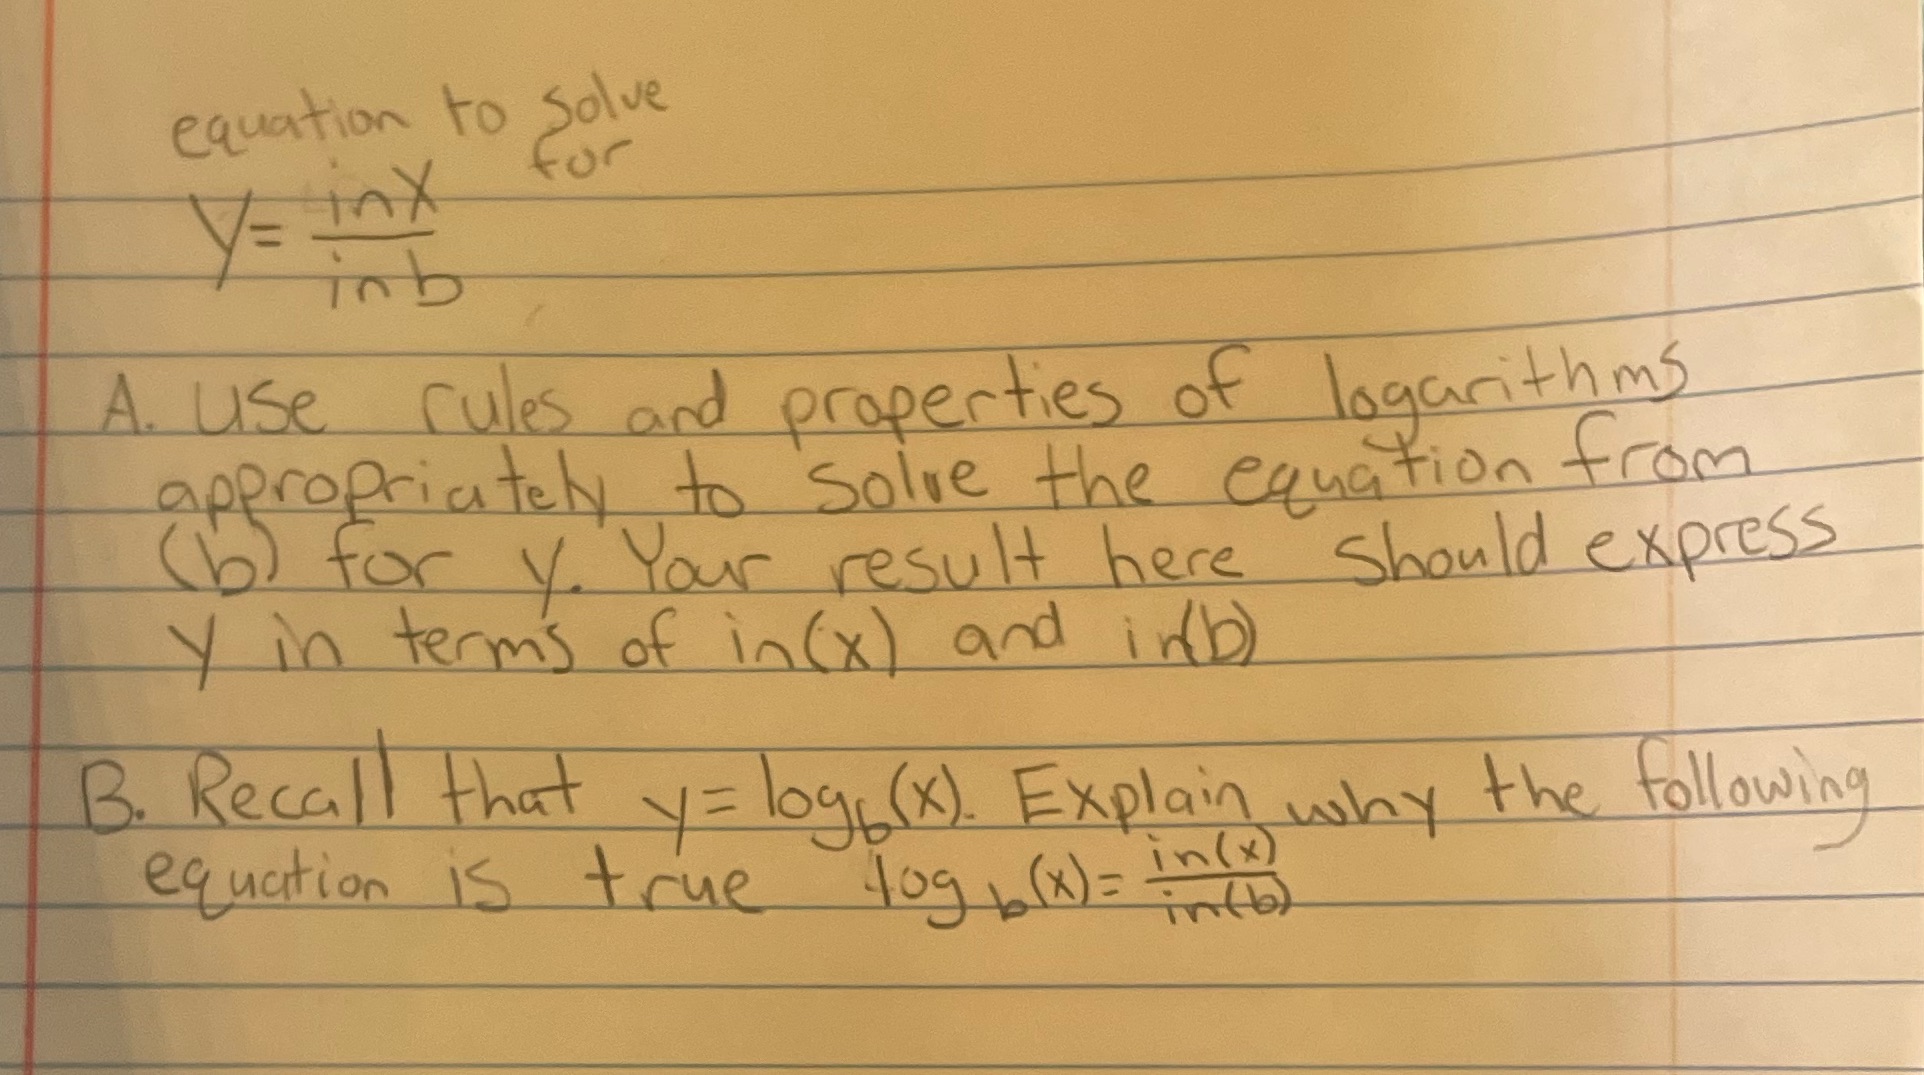 equation to solve
for
y= inx
inb
A. Use rules and properties of logarithms
appropriately to solve the equation from
(b) for y. Your result here should express
y in terms of in(x) and in(b)
B. Recall that y=log_b(x). Explain why the following
equation is true log_b(x)= in(x)
in(b)